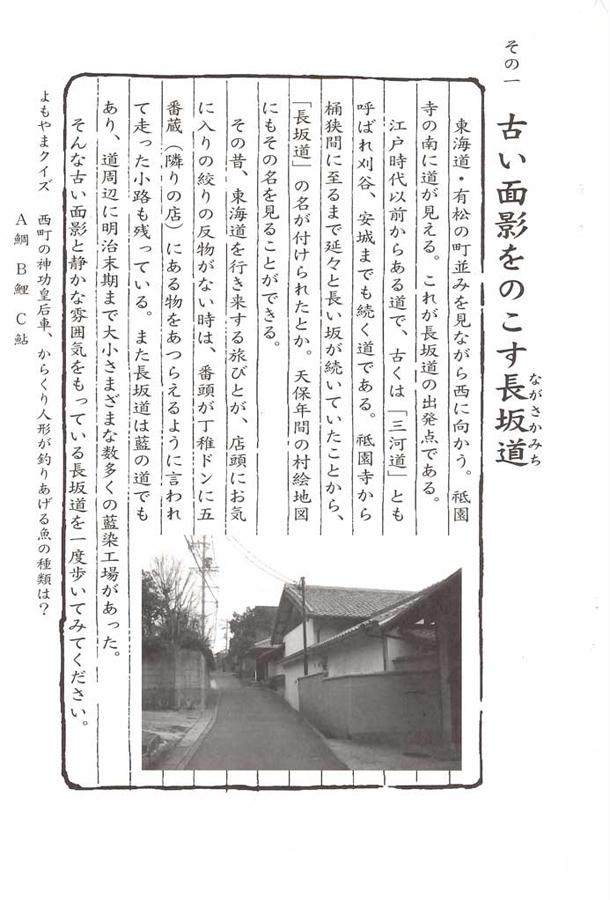 その一
古い面影をのこす長坂道
ながさかみち
東海道・有松の町並みを見ながら西に向かう。祗園
寺の南に道が見える。これが長坂道の出発点である。
江戸時代以前からある道で、古くは「三河道」とも
呼ばれ刈谷、安城までも続く道である。祗園寺から
桶狭間に至るまで延々と長い坂が続いていたことから、
「長坂道」の名が付けられたとか。天保年間の村絵地図
にもその名を見ることができる。
その昔、東海道を行き来する旅びとが、店頭にお気
に入りの絞りの反物がない時は、番頭が丁稚ドンに五
番蔵（隣りの店）にある物をあつらえるように言われ
て走った小路も残っている。また長坂道は藍の道でも
あり、道周辺に明治末期まで大小さまざまな数多くの藍染工場があった。
そんな古い面影と静かな雰囲気をもっている長坂道を一度歩いてみてください。
よもやまクイズ　西町の神功皇后車、からくり人形が釣りあげる魚の種類は？
A 鯛　B 鯉　C 鮎